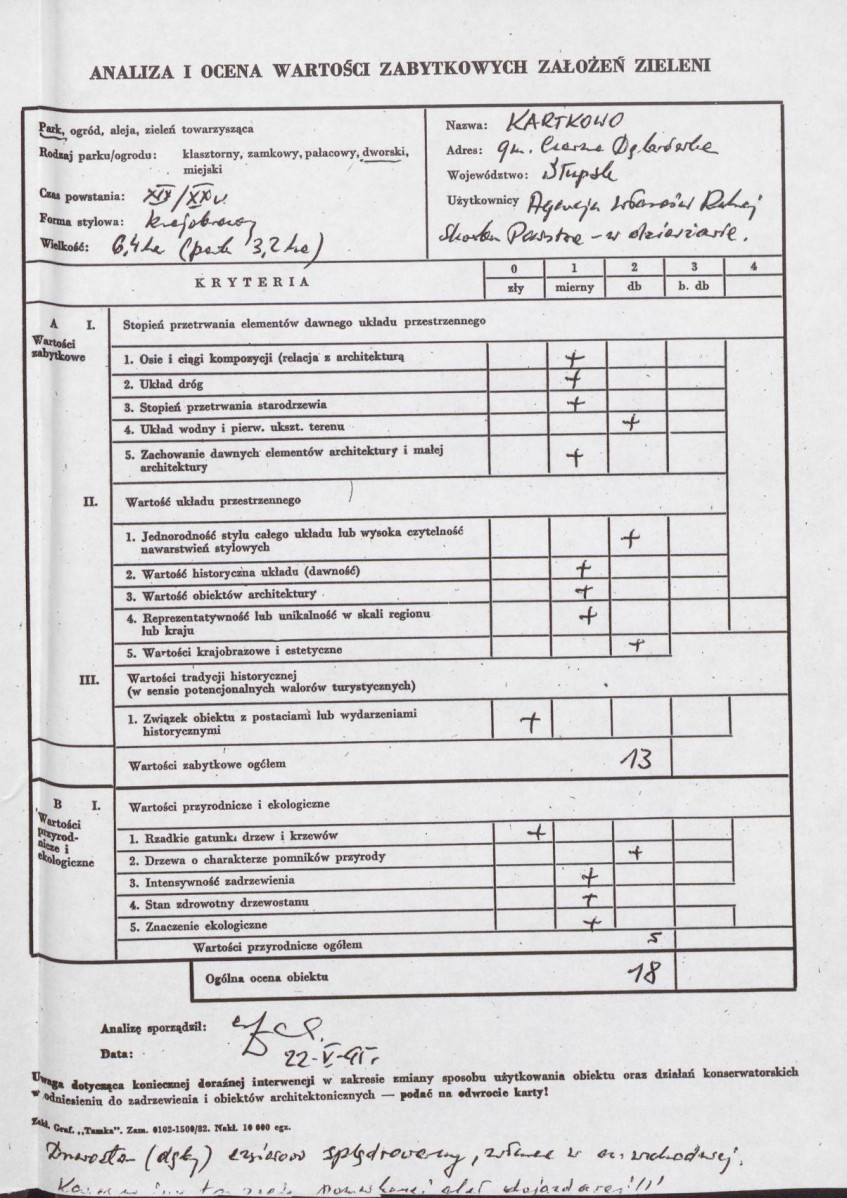 ANALIZA I OCENA WARTOŚCI ZABYTKOWYCH ZAŁOŻEŃ ZIELENI
Park, ogród, aleja, zieleń towarzysząca
Rodzaj parku/ogrodu: klasztorny, zamkowy, pałacowy, dworski,
miejski
Czas powstania: XIX/XX w.
Forma stylowa: krajobrazowy
Wielkość: 6,4 ha (park 3,2 ha)
Nazwa: KARTKOWO
Adres: gm. Czarna Dąbrówka
Województwo: Słupsk
Użytkownicy Agencja Własności Rolnej
Skarbu Państwa - w dzierżawie.
KRYTERIA
0 1 2 3 4
zły mierny db b. db
A I. Stopień przetrwania elementów dawnego układu przestrzennego
Wartości
zabytkowe
1. Osie i ciągi kompozycji (relacja z architekturą +
2. Układ dróg +
3. Stopień przetrwania starodrzewia +
4. Układ wodny i pierw. ukszt. terenu +
5. Zachowanie dawnych elementów architektury i małej
architektury +
II. Wartość układu przestrzennego
1. Jednorodność stylu całego układu lub wysoka czytelność
nawarstwień stylowych +
2. Wartość historyczna układu (dawność) +
3. Wartość obiektów architektury +
4. Reprezentatywność lub unikalność w skali regionu
lub kraju +
5. Wartości krajobrazowe i estetyczne +
III. Wartości tradycji historycznej
(w sensie potencjonalnych walorów turystycznych)
1. Związek obiektu z postaciami lub wydarzeniami
historycznymi +
Wartości zabytkowe ogółem 13
B I. Wartości przyrodnicze i ekologiczne
Wartości
przyrod-
nicze i
ekologiczne
1. Rzadkie gatunki drzew i krzewów +
2. Drzewa o charakterze pomników przyrody +
3. Intensywność zadrzewienia +
4. Stan zdrowotny drzewostanu +
5. Znaczenie ekologiczne +
Wartości przyrodnicze ogółem 5
Ogólna ocena obiektu 18
Analizę sporządził:
Data: 22-V-95 r.
Uwaga dotycząca koniecznej doraźnej interwencji w zakresie zmiany sposobu użytkowania obiektu oraz działań konserwatorskich
w odniesieniu do zadrzewienia i obiektów architektonicznych — podać na odwrocie karty!
Zakł. Graf. „Tamka". Zam. 0102-1500/82. Nakł. 10 000 egz.
Drzewostan (dęby) częściowo splądrowany, w cz. wschodniej.